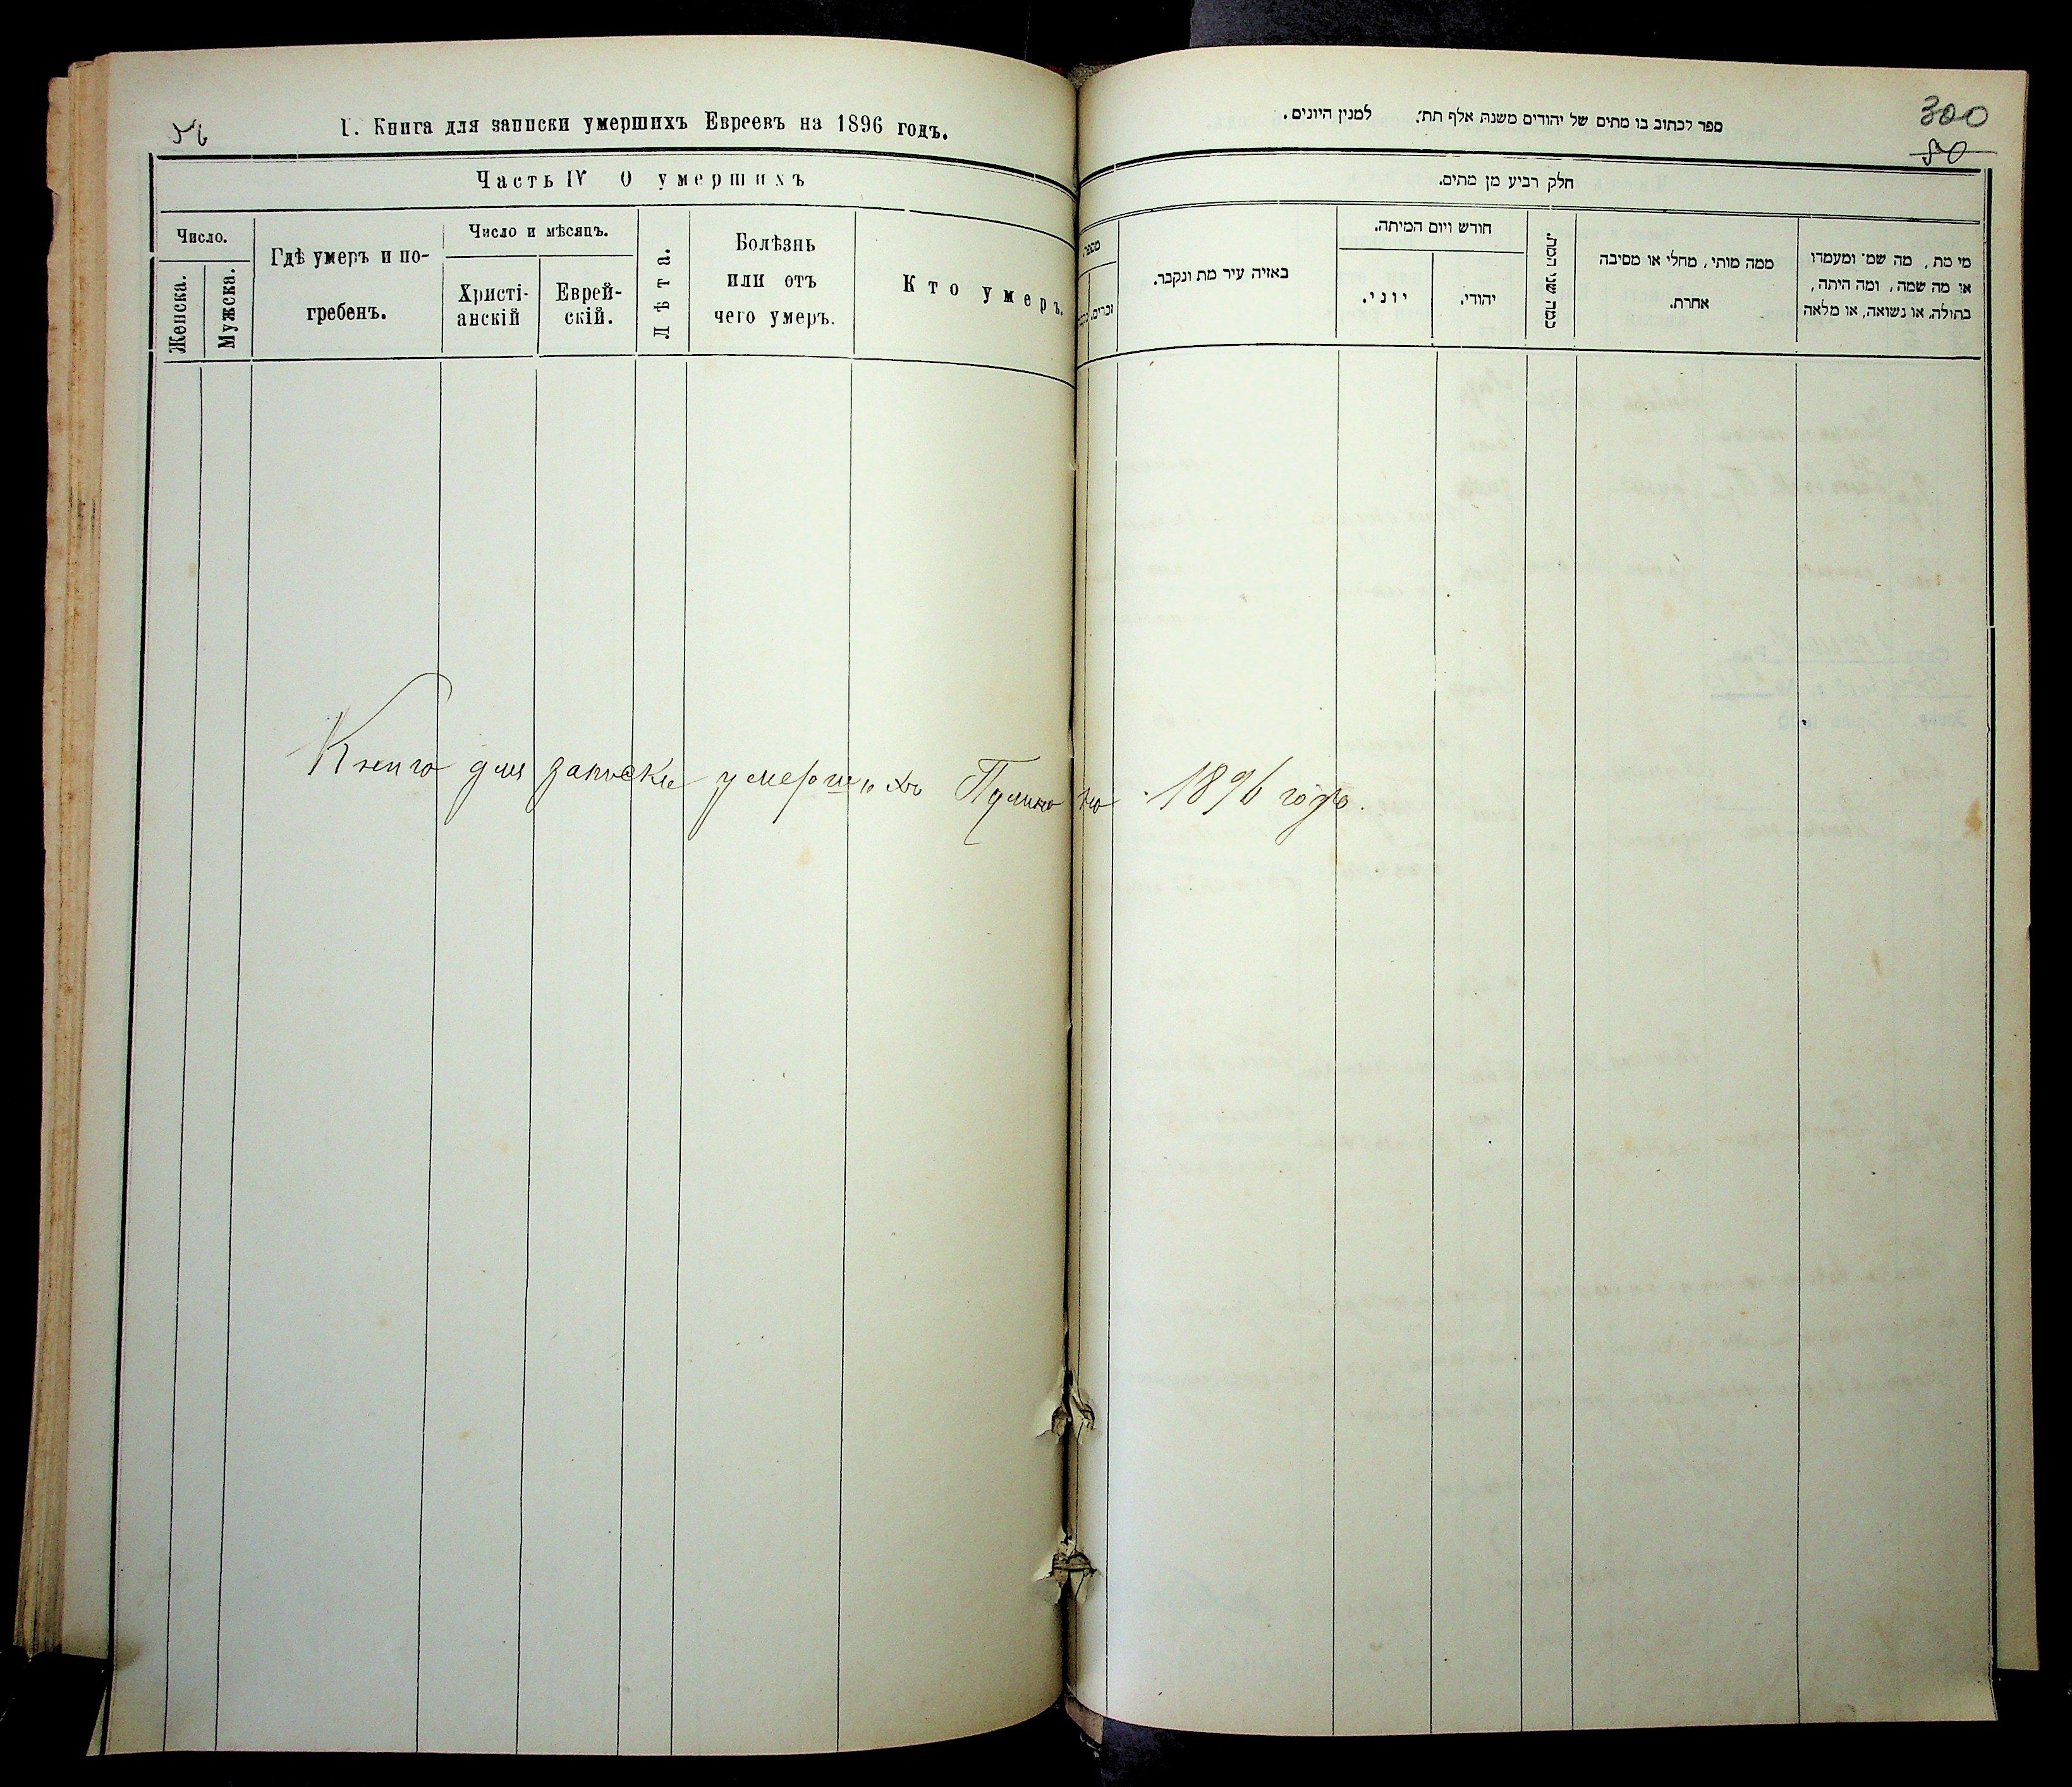 56
I. Книга для записки умершихъ Евреевъ на 1896 годъ.
Часть IV О умершихъ
Число.
Женска.
Мужска.
Гдѣ умеръ и по-
гребенъ.
Число и мѣсяцъ.
Христі-
анскій
Еврей-
скій.
Лѣта.
Болѣзнь
или отъ
чего умеръ.
Кто умеръ.
Книга для записки умершихъ на 1896 годъ.
300
50
ספר לכתוב בו מתים של יהודים משנת אלף תת׳ למנין היונים.
חלק רביע מן מתים.
מספר
זכרים.
באיזה עיר מת ונקבר.
חודש ויום המיתה.
יוני.
יהודי.
כמה שני המת.
ממה מותי, מחלי או מסיבה
אחרת.
מי מת, מה שמו ומעמדו
או מה שמה, ומה היתה,
בתולה, או נשואה, או מלאה